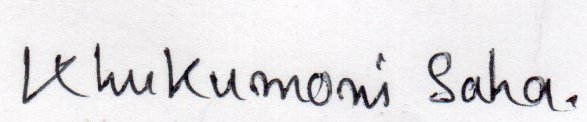 Khukumoni Saha.